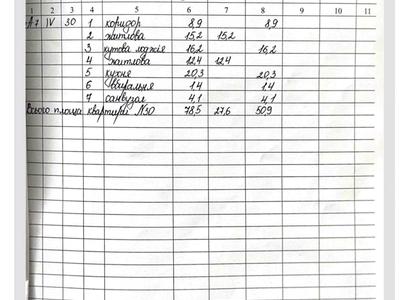 1 2 3 4 5 6 7 8 9 10 11
А-1 IV 30 1 коридор 8,9 8,9
2 житлова 15,2 15,2
3 кутова лоджія 16,2 16,2
4 житлова 12,4 12,4
5 кухня 20,3 20,3
6 вбиральня 1,4 1,4
7 санвузол 4,1 4,1
Всього площа квартири №30 78,5 27,6 50,9